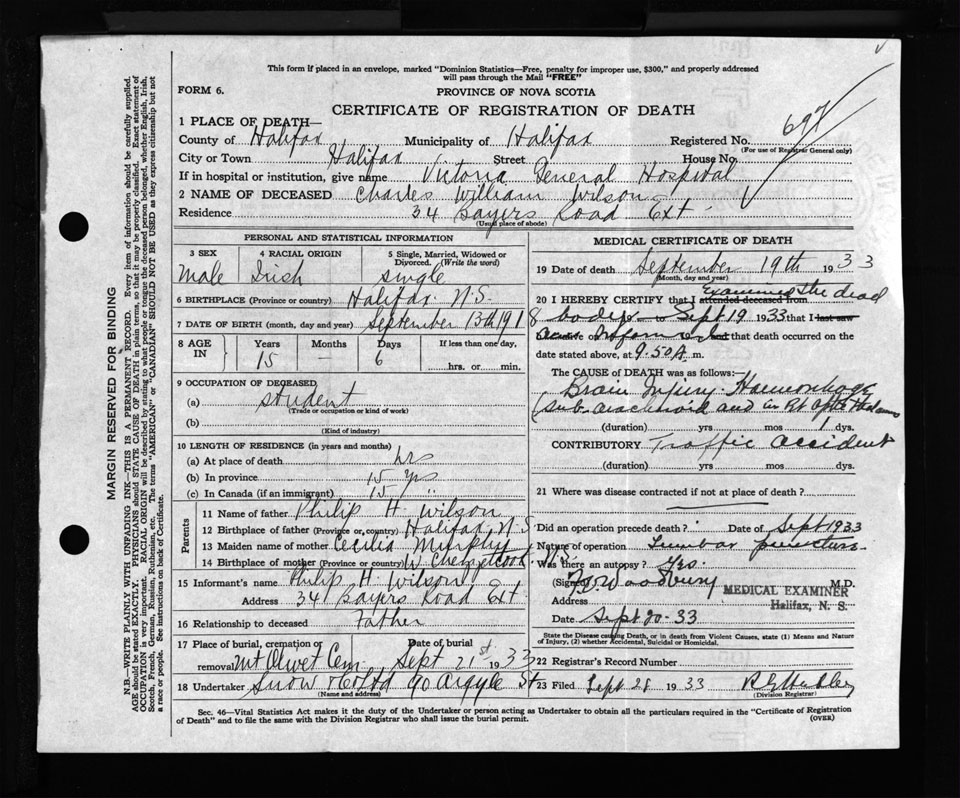 This form if placed in an envelope, marked "Dominion Statistics—Free, penalty for improper use, $300," and properly addressed
will pass through the Mail "FREE"
FORM 6.
PROVINCE OF NOVA SCOTIA
CERTIFICATE OF REGISTRATION OF DEATH
1 PLACE OF DEATH—
County of Halifax Municipality of Halifax Registered No. 697
(For use of Registrar General only)
City or Town Halifax Street House No.
If in hospital or institution, give name Victoria General Hospital
2 NAME OF DECEASED Charles William Wilson
Residence 34 Bayers Road Ext.
(Usual place of abode)
PERSONAL AND STATISTICAL INFORMATION
3 SEX 4 RACIAL ORIGIN 5 Single, Married, Widowed or
Divorced. (Write the word)
Male Irish single
6 BIRTHPLACE (Province or country) Halifax N.S.
7 DATE OF BIRTH (month, day and year) September 13th 191
8
8 AGE IN Years Months Days If less than one day,
15 — 6 hrs. or min.
9 OCCUPATION OF DECEASED
(a) student
(Trade or occupation or kind of work)
(b)
(Kind of industry)
10 LENGTH OF RESIDENCE (in years and months)
(a) At place of death hrs
(b) In province 15 yrs
(c) In Canada (if an immigrant) 15 "
Parents
11 Name of father Philip H. Wilson
12 Birthplace of father (Province or country) Halifax, N.S.
13 Maiden name of mother Cecilia Murphy
14 Birthplace of mother (Province or country) W. Chezzetcook N.S.
15 Informant's name Philip H. Wilson
Address 34 Bayers Road Ext.
16 Relationship to deceased Father
17 Place of burial, cremation or Date of burial
removal Mt Olivet Cem. Sept 21st 1933
18 Undertaker Snow & Co Ltd 90 Argyle St
(Name and address)
MEDICAL CERTIFICATE OF DEATH
19 Date of death September 19th 1933
(Month, day and year)
Examined the dead
20 I HEREBY CERTIFY that I attended deceased from
body to Sept 19 1933 that I last saw
alive on and that death occurred on the
date stated above, at 9.50 A m.
The CAUSE OF DEATH was as follows:—
Brain Injury. Haemorrhage
(sub. arachnoid and in Rt optic thalamus
(duration) yrs mos 1 dys.
CONTRIBUTORY Traffic accident
(duration) yrs mos dys.
21 Where was disease contracted if not at place of death?
Did an operation precede death? Date of Sept 1933
Nature of operation Lumbar puncture
Was there an autopsy? Yes.
(Signed) Woodbury M.D.
MEDICAL EXAMINER
Address Halifax, N. S.
Date Sept 20-33
State the Disease causing Death, or in death from Violent Causes, state (1) Means and Nature
of Injury, (2) whether Accidental, Suicidal or Homicidal.
22 Registrar's Record Number
23 Filed Sept 28 1933
(Division Registrar)
Sec. 46—Vital Statistics Act makes it the duty of the Undertaker or person acting as Undertaker to obtain all the particulars required in the "Certificate of Registration
of Death" and to file the same with the Division Registrar who shall issue the burial permit.
(OVER)
MARGIN RESERVED FOR BINDING
N.B.—WRITE PLAINLY WITH UNFADING INK—THIS IS A PERMANENT RECORD. Every item of information should be carefully supplied.
AGE should be stated EXACTLY. PHYSICIANS should STATE CAUSE OF DEATH in plain terms, so that it may be properly classified. Exact statement of
OCCUPATION is very important. RACIAL ORIGIN will be described by stating to what people or tongue the deceased person belonged, whether English, Irish,
Scotch, French, German, Russian, Ruthenian, etc. The terms "AMERICAN" or "CANADIAN" SHOULD NOT BE USED as they express citizenship but not
a race or people. See instructions on back of Certificate.